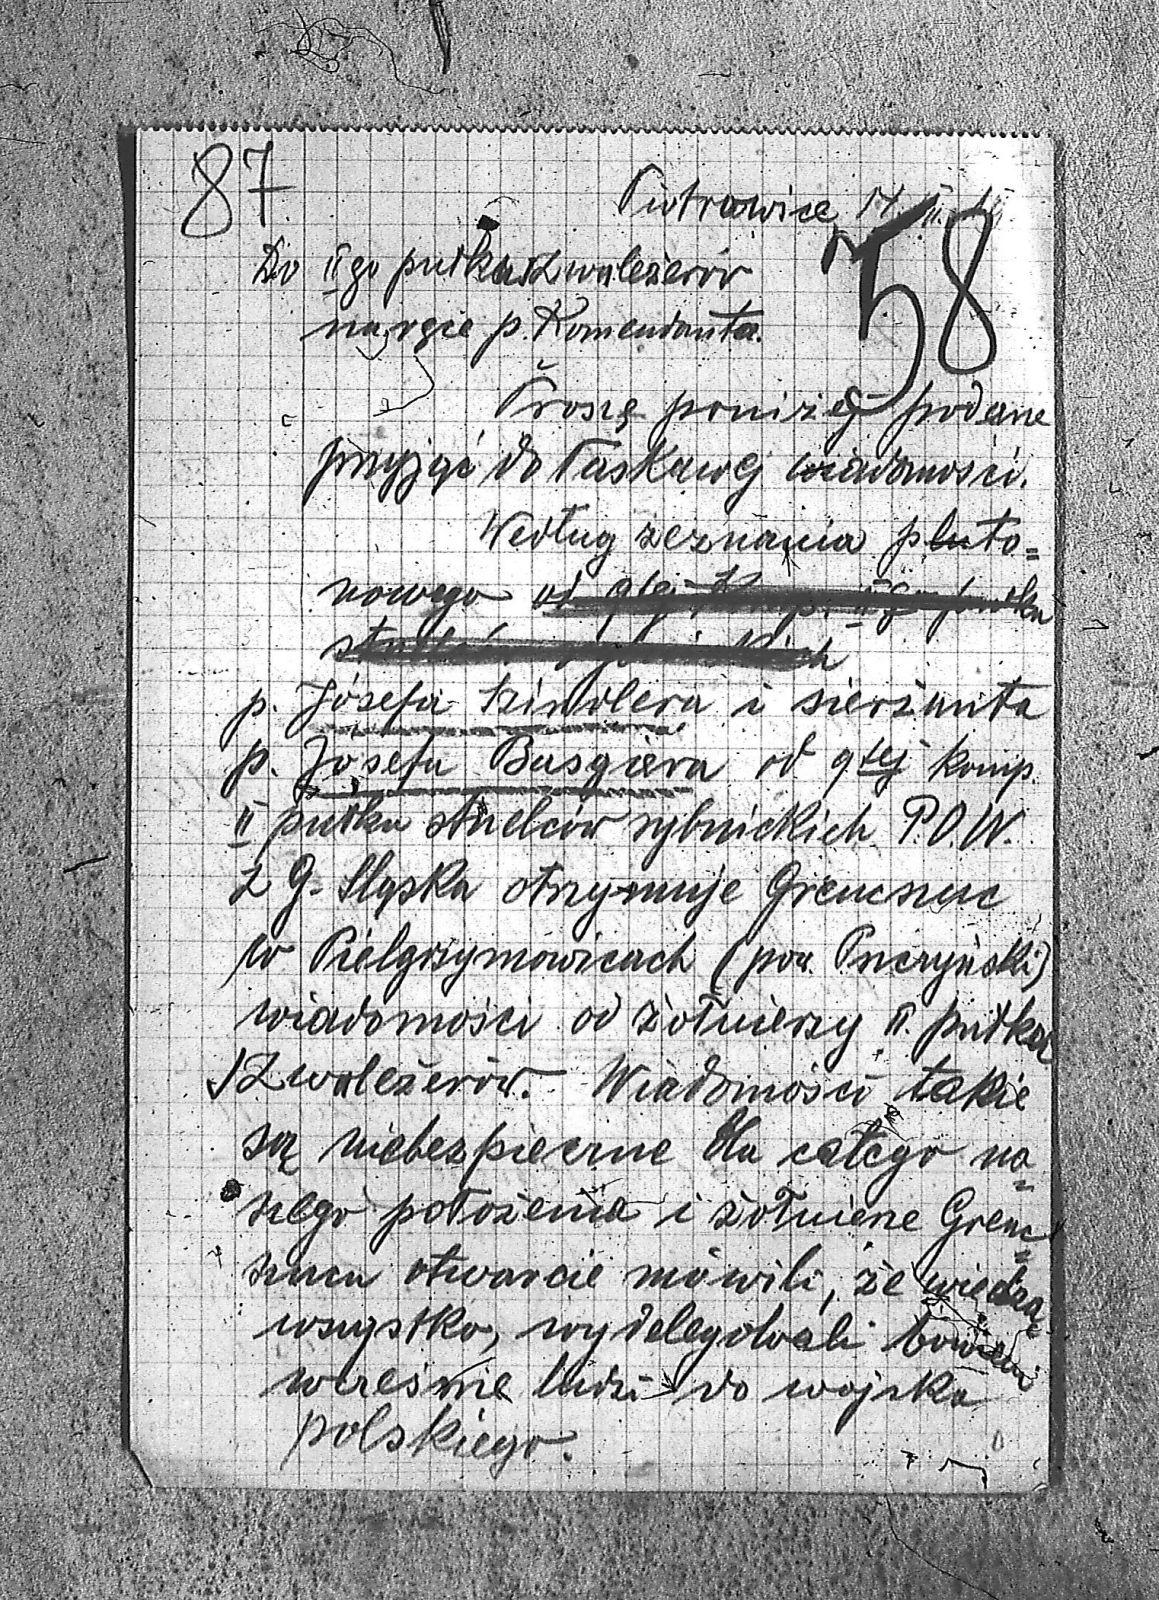 87
Piotrowice 17. II.
58
Do II go pułku szwoleżerów
na ręce p. Komendanta.
Proszę poniżej podane
przyjąć do łaskawej wiadomości.
Według zeznania pluto=
nowego od 9tej Komp. II go pułku
strzelców rybnickich
p. Józefa Kindlera i sierżanta
p. Józefa Basgiera od 9tej komp.
II pułku strzelców rybnickich P.O.W.
z G. Śląska otrzymuje Grencszuc
w Pielgrzymowicach (pow. Pszczyński)
wiadomości od żołnierzy II. pułku
szwoleżerów. Wiadomości takie
są niebezpieczne dla całego na=
szego położenia i żołnierze Grenc=
szucu otwarcie mówili, że wiedzą
wszystko, wydelegowali bowiem
wcześnie ludzi do wojska
polskiego.